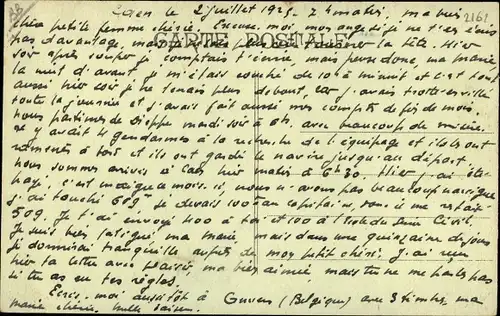 Caen le 2 juillet 1925. 7h matin, ma bien
chère petite femme chérie, Excuse moi mon ange si je ne t'écris
pas davantage, mais la tête. Hier
CARTE POSTALE
soir après souper je comptais t'écrire, mais peux donc, ma Marie
la nuit d'avant je m'étais couché de 10h à minuit et c'est tout
aussi hier soir je ne tenais plus debout, car j'avais trotté en ville
toute la journée et j'avais fait aussi mes comptes de fin de mois
nous partîmes de Dieppe mardi soir à 6h. avec beaucoup de misère.
il y avait 4 gendarmes à la recherche de l'équipage et ils les ont
ramenés à bord et ils ont gardé le navire jusqu'au départ.
nous sommes arrivés à Caen hier matin à 6h30. Hier, j'ai été
payé, c'est maigre ce mois-ci, nous n'avons pas beaucoup navigué
j'ai touché 609f je devais 100f au capitaine, donc il me restait
509. Je t'ai envoyé 400 à toi et 100 à
Je suis bien fatigué ma Marie mais dans une quinzaine de jours
je dormirai tranquille auprès de mon petit chéri. J'ai reçu
hier ta lettre avec plaisir, ma bien aimée mais tu ne me parles pas
si tu as eu tes règles.
Ecris-moi aussitôt à Anvers (Belgique) avec 3 timbres, ma
Marie chérie, mille baisers.
2162